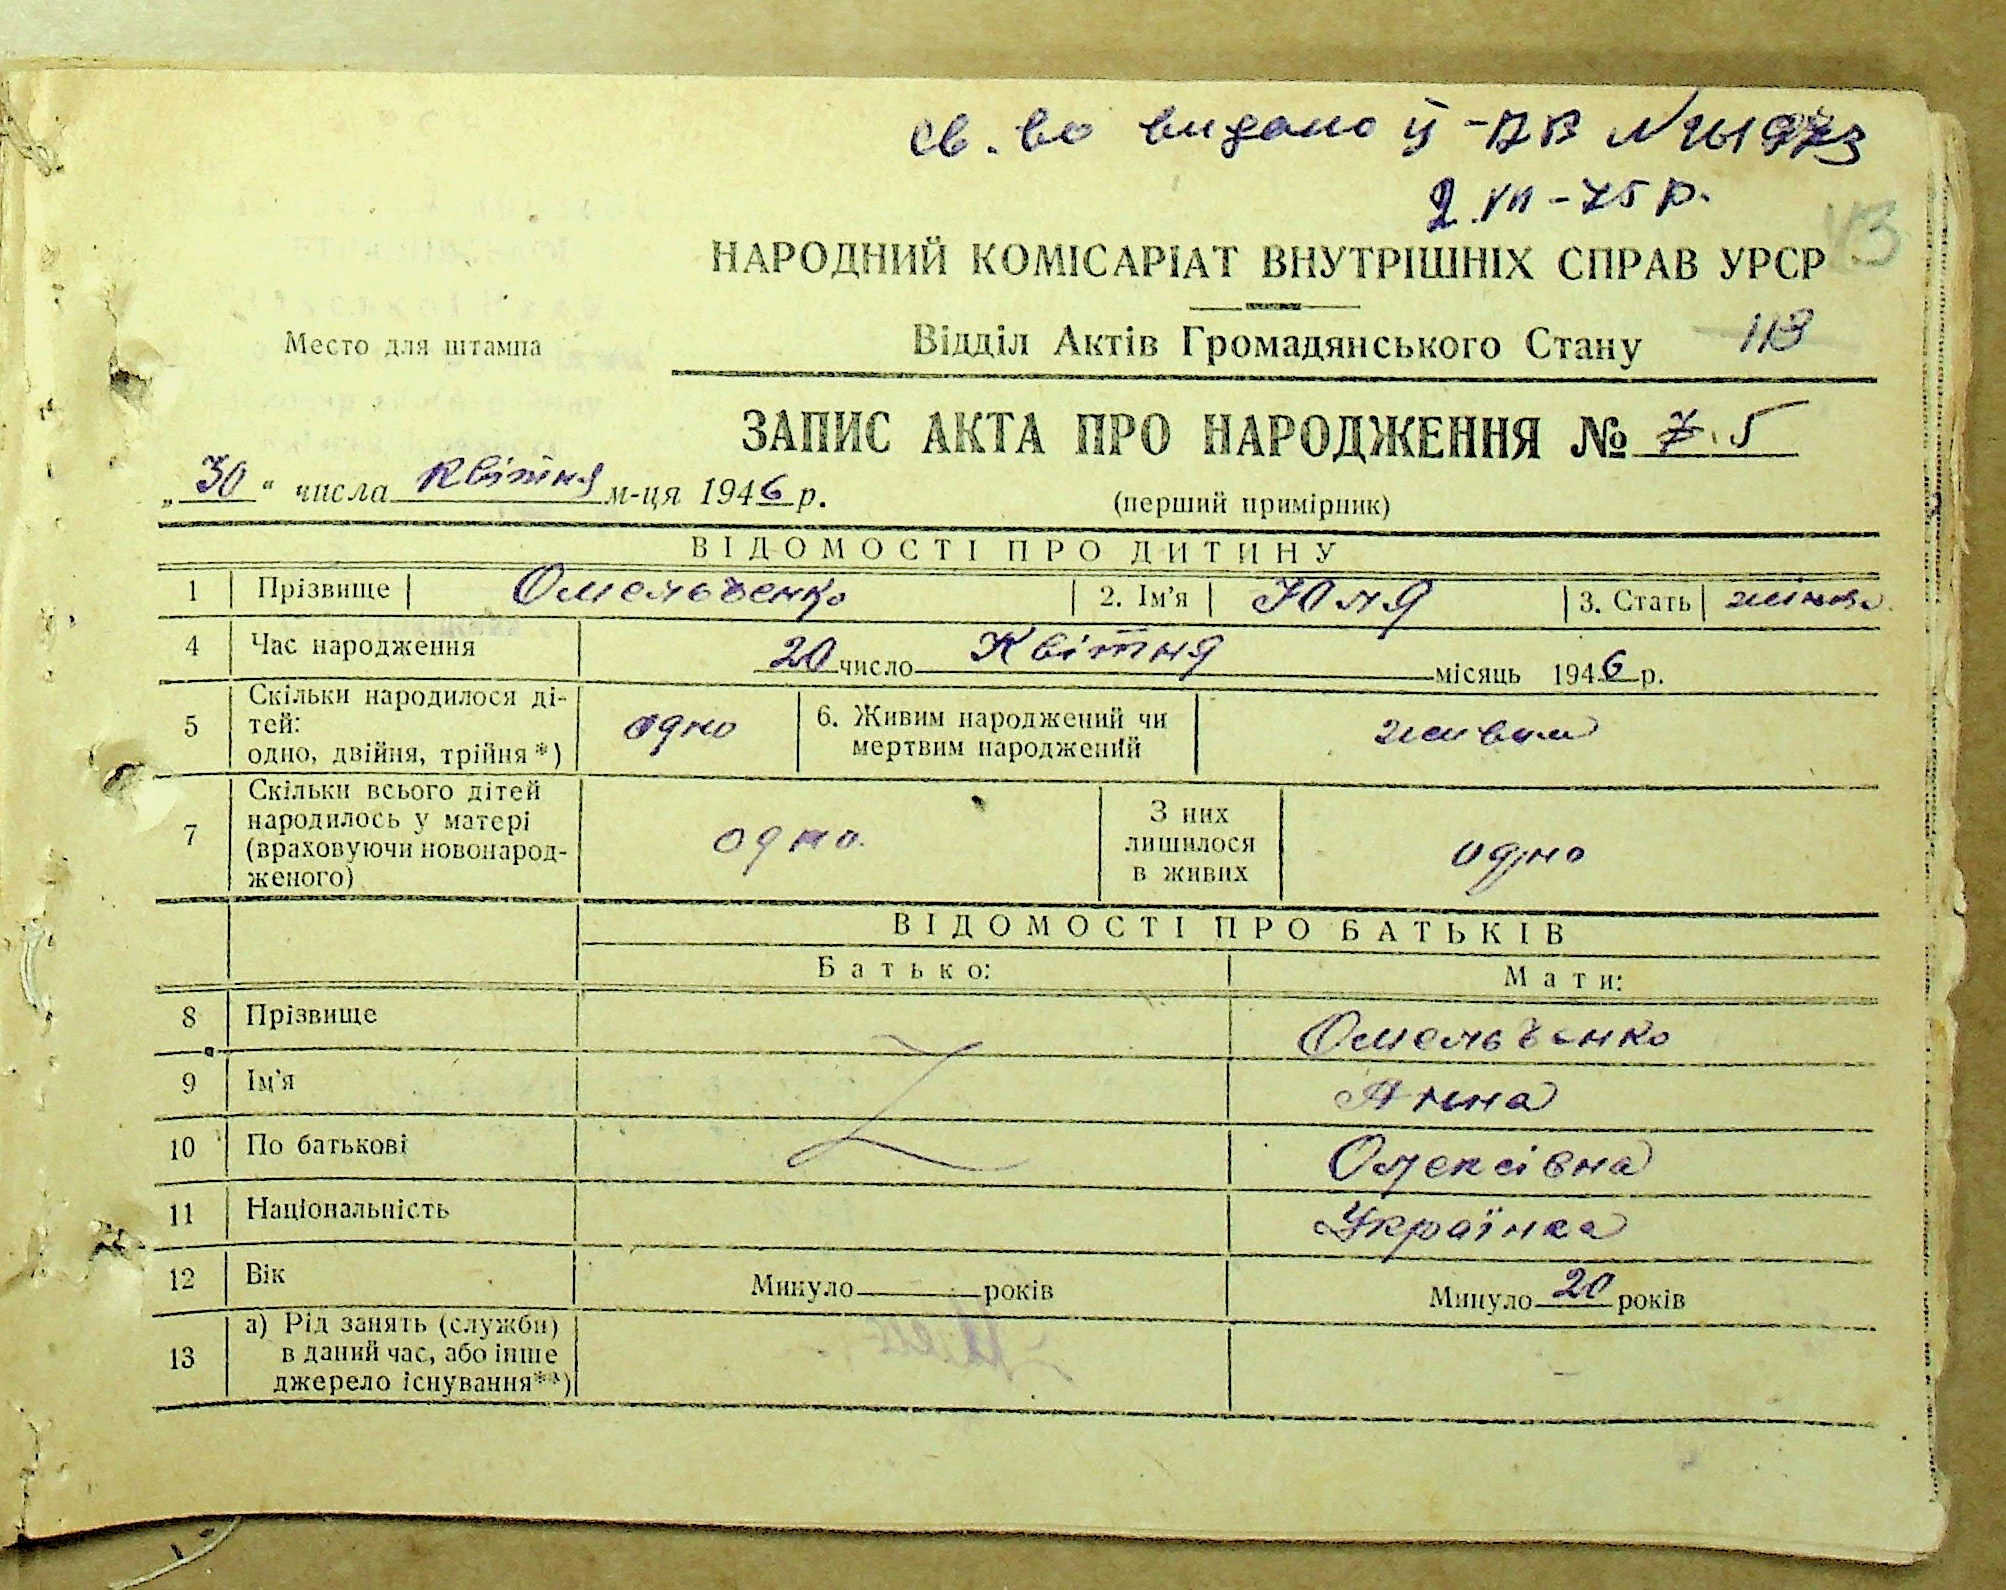 св.во видано ІІ-АВ №
2.VII-75 р.
43
НАРОДНИЙ КОМІСАРІАТ ВНУТРІШНІХ СПРАВ УРСР
Место для штампа
Відділ Актів Громадянського Стану 113
ЗАПИС АКТА ПРО НАРОДЖЕННЯ № 7. 5
„30" числа квітня м-ця 1946 р.
(перший примірник)
ВІДОМОСТІ ПРО ДИТИНУ
1 Прізвище Омельченко 2. Ім'я Юля 3. Стать жіноча
4 Час народження 20 число Квітня місяць 1946 р.
5 Скільки народилося ді-
тей:
одно, двійня, трійня*) одно 6. Живим народжений чи
мертвим народжений живим
7 Скільки всього дітей
народилось у матері
(враховуючи новонарод-
женого) одно. З них
лишилося
в живих одно
ВІДОМОСТІ ПРО БАТЬКІВ
Батько: Мати:
8 Прізвище Омельченко
9 Ім'я Анна
10 По батькові Олексівна
11 Національність Українка
12 Вік Минуло років Минуло 20 років
13 а) Рід занять (служби)
в даний час, або інше
джерело існування**)